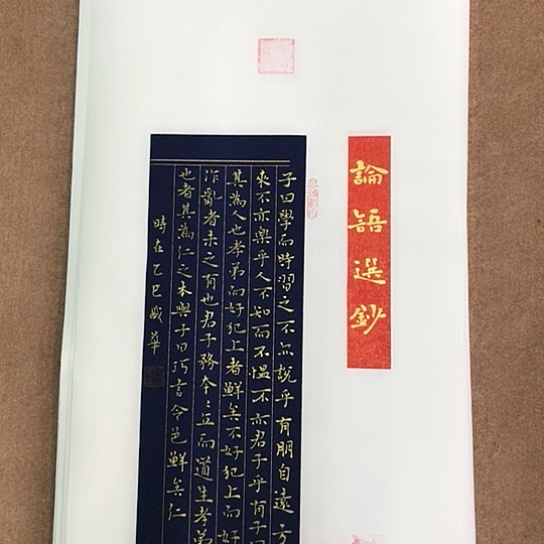 論語選鈔
子曰學而時習之不亦說乎有朋自遠方
來不亦樂乎人不知而不慍不亦君子乎有子曰
其為人也孝弟而好犯上者鮮矣不好犯上而好
作亂者未之有也君子務本〻立而道生孝弟
也者其為仁之本與子曰巧言令色鮮矣仁
時在乙巳華